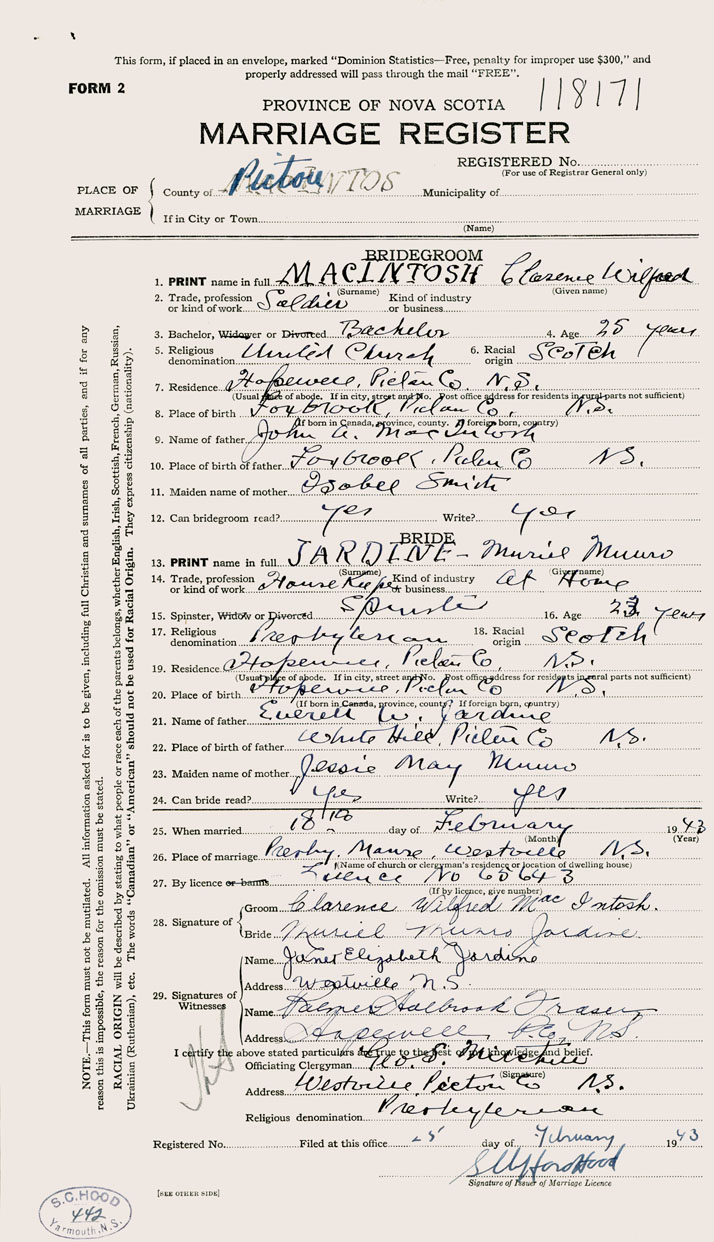 This form, if placed in an envelope, marked "Dominion Statistics—Free, penalty for improper use $300," and
properly addressed will pass through the mail "FREE".
FORM 2
118171
PROVINCE OF NOVA SCOTIA
MARRIAGE REGISTER
REGISTERED No.
(For use of Registrar General only)
PLACE OF MARRIAGE
County of Pictou Municipality of
If in City or Town
(Name)
BRIDEGROOM
1. PRINT name in full MACINTOSH Clarence Wilfred
(Surname) (Given name)
2. Trade, profession or kind of work Soldier Kind of industry or business
3. Bachelor, Widower or Divorced Bachelor 4. Age 25 years
5. Religious denomination United Church 6. Racial origin Scotch
7. Residence Hopewell, Pictou Co. N.S.
(Usual place of abode. If in city, street and No. Post office address for residents in rural parts not sufficient)
8. Place of birth Foxbrook, Pictou Co, N.S.
(If born in Canada, province, county. If foreign born, country)
9. Name of father John A. MacIntosh
10. Place of birth of father Foxbrook, Pictou Co N.S.
11. Maiden name of mother Isobel Smith
12. Can bridegroom read? yes Write? yes
BRIDE
13. PRINT name in full JARDINE - Muriel Munro
(Surname) (Given name)
14. Trade, profession or kind of work House Keeper Kind of industry or business at Home
15. Spinster, Widow or Divorced Spinster 16. Age 23 years
17. Religious denomination Presbyterian 18. Racial origin Scotch
19. Residence Hopewell, Pictou Co, N.S.
(Usual place of abode. If in city, street and No. Post office address for residents in rural parts not sufficient)
20. Place of birth Hopewell, Pictou Co N.S.
(If born in Canada, province, county? If foreign born, country)
21. Name of father Everett W. Jardine
22. Place of birth of father White Hill, Pictou Co N.S.
23. Maiden name of mother Jessie May Munro
24. Can bride read? yes Write? yes
25. When married 18th day of February 1943
(Month) (Year)
26. Place of marriage Presby. Manse, Westville N.S.
(Name of church or clergyman's residence or location of dwelling house)
27. By licence or banns Licence No 65643
(If by licence, give number)
28. Signature of
Groom Clarence Wilfred MacIntosh.
Bride Muriel Munro Jardine.
29. Signatures of Witnesses
Name Janet Elizabeth Jardine
Address Westville N.S.
Name Holbrook Fraser
Address Hopewell, P.Co, N.S.
I certify the above stated particulars are true to the best of my knowledge and belief.
Officiating Clergyman Geo. S. Mitchell
(Signature)
Address Westville Pictou Co N.S.
Religious denomination Presbyterian
Registered No. Filed at this office 25 day of February 1943
S Clifford Hood
Signature of Issuer of Marriage Licence
[SEE OTHER SIDE]
S.C. HOOD
442
Yarmouth, N.S.
NOTE.—This form must not be mutilated. All information asked for is to be given, including full Christian and surnames of all parties, and if for any
reason this is impossible, the reason for the omission must be stated.
RACIAL ORIGIN will be described by stating to what people or race each of the parents belongs, whether English, Irish, Scottish, French, German, Russian,
Ukrainian (Ruthenian), etc. The words "Canadian" or "American" should not be used for Racial Origin. They express citizenship (nationality).